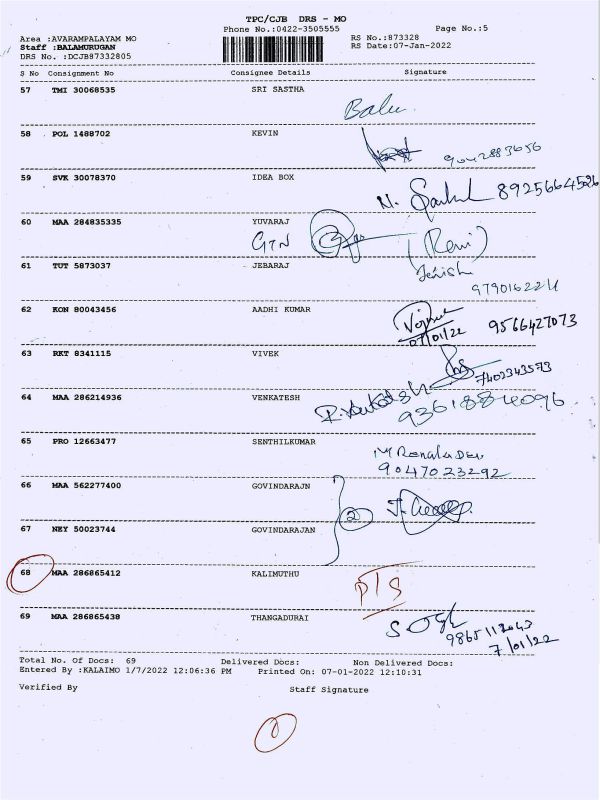 TPC/CJB DRS - MO
Phone No.:0422-3505555
Page No.:5
Area :AVARAMPALAYAM MO
RS No.:873328
Staff :BALAMURUGAN
RS Date:07-Jan-2022
DRS No. :DCJB87332805
S No Consignment No Consignee Details Signature
57 TMI 30068535 SRI SASTHA
Balu
58 POL 1488702 KEVIN
9042883656
59 SVK 30078370 IDEA BOX
N. 8925664526
60 MAA 284835335 YUVARAJ
GTN (Revi)
61 TUT 5873037 JEBARAJ
Jenish
62 KON 80043456 AADHI KUMAR
07/01/22 9566427073
63 RKT 8341115 VIVEK
7402343573
64 MAA 286214936 VENKATESH
R. Venkatesh
65 PRO 12663477 SENTHILKUMAR
9047023292
66 MAA 562277400 GOVINDARAJN
2
67 NEY 50023744 GOVINDARAJAN
68 MAA 286865412 KALIMUTHU
PTS
69 MAA 286865438 THANGADURAI
7/01/22
Total No. Of Docs: 69 Delivered Docs: Non Delivered Docs:
Entered By :KALAIMO 1/7/2022 12:06:36 PM Printed On: 07-01-2022 12:10:31
Verified By Staff Signature